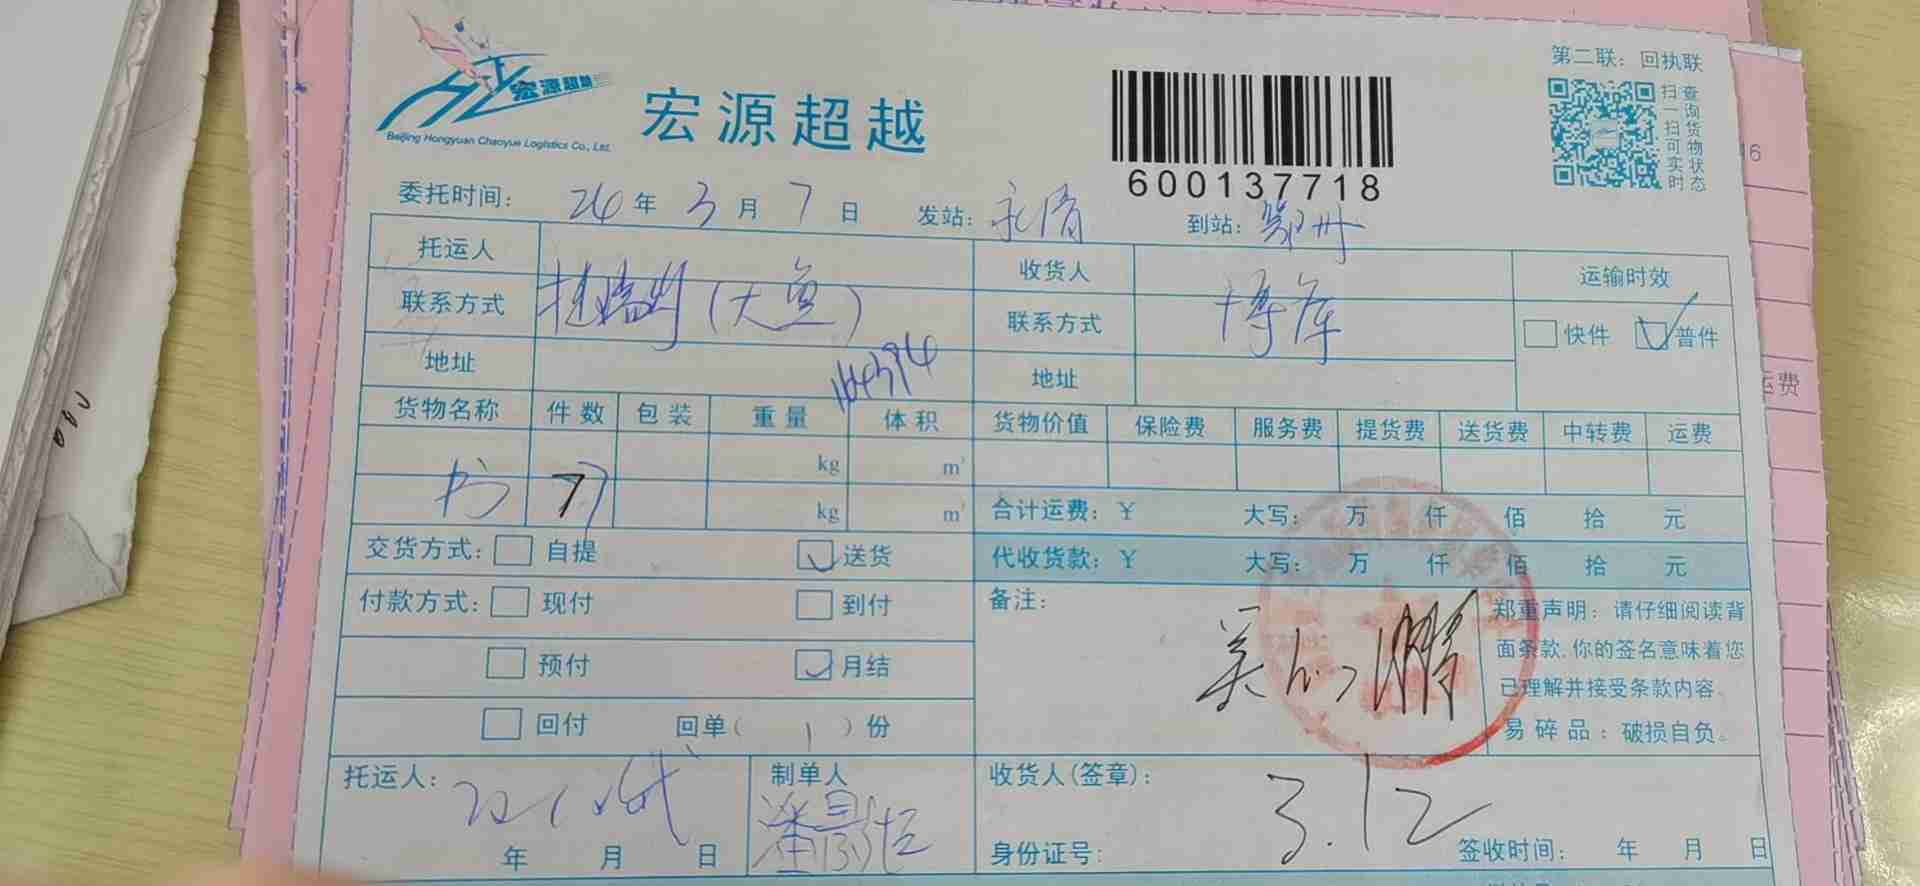 第二联：回执联
宏源超越
Beijing Hongyuan Chaoyue Logistics Co., Ltd.
宏源超越
600137718
扫一扫可实时
查询货物状态
委托时间： 24 年 3 月 7 日 发站： 永清 到站： 鄂州
托运人 收货人 运输时效
联系方式 (大鱼) 联系方式 博库 快件 普件
地址 地址
货物名称 件数 包装 重量 体积 货物价值 保险费 服务费 提货费 送货费 中转费 运费
kg m³
书 77 kg m³
合计运费：￥ 大写： 万 仟 佰 拾 元
交货方式： 自提 送货
代收货款：￥ 大写： 万 仟 佰 拾 元
付款方式： 现付 到付
备注：
郑重声明：请仔细阅读背
面条款,你的签名意味着您
已理解并接受条款内容。
易碎品：破损自负。
预付 月结
回付 回单（ 1 ）份
托运人： 制单人 收货人(签章)：
3.12
年 月 日 身份证号： 签收时间： 年 月 日
运费
16